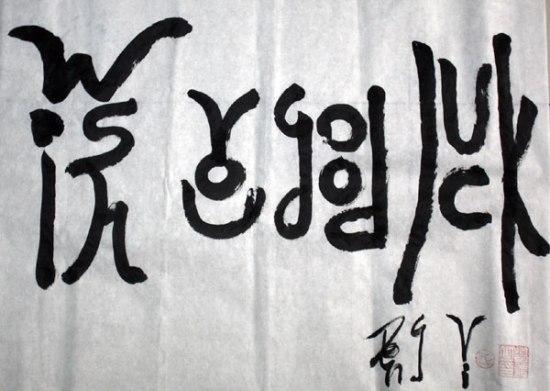 Wish you good luck